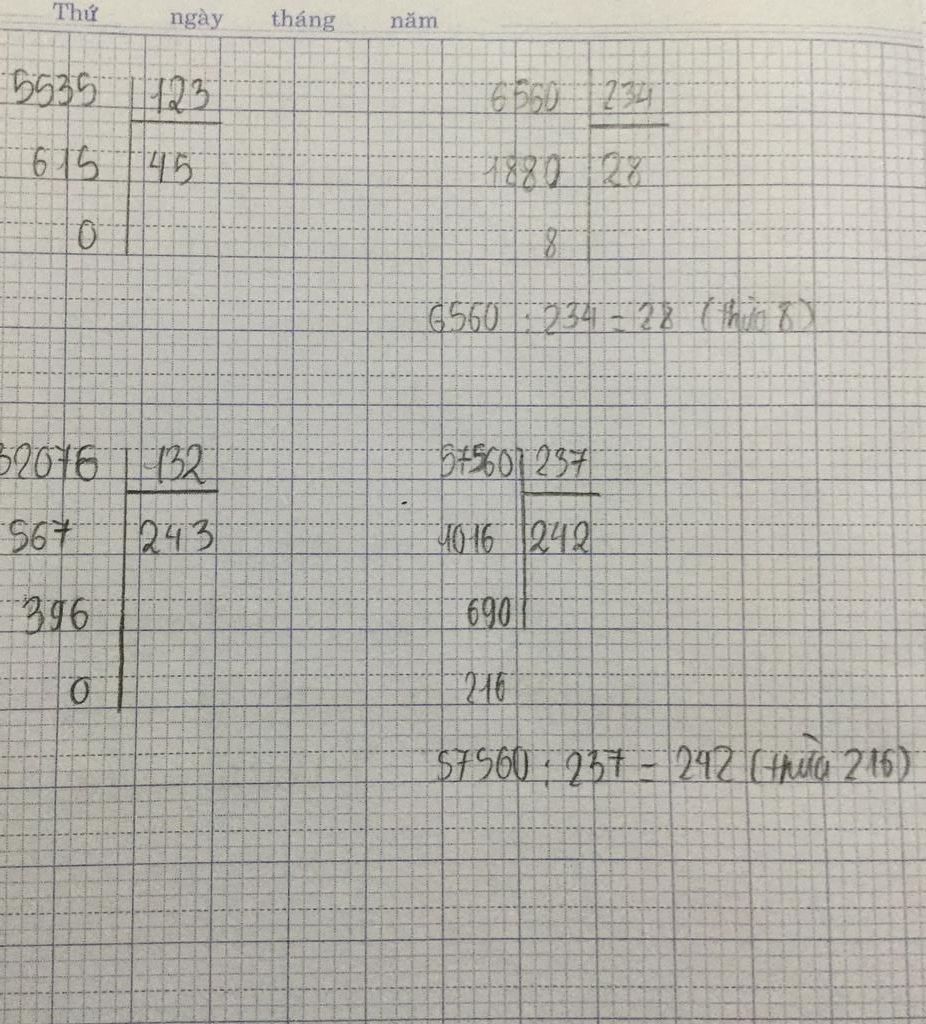 Thứ ngày tháng năm
5535 123
615 45
0
6560 234
1880 28
8
6560 : 234 = 28 (thừa 8)
32076 132
567 243
396
0
57560 237
1016 242
690
216
57560 : 237 = 242 (thừa 216)